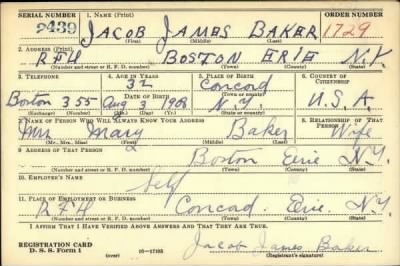 SERIAL NUMBER 1. NAME (Print) ORDER NUMBER
2439 JACOB JAMES BAKER 1729
(First) (Middle) (Last)
2. ADDRESS (Print)
RFH BOSTON ERIE N.Y.
(Number and street or R. F. D. number) (Town) (County) (State)
3. TELEPHONE 4. AGE IN YEARS 5. PLACE OF BIRTH 6. COUNTRY OF CITIZENSHIP
32 Concord
DATE OF BIRTH (Town or county)
Boston 355 Aug 3 1908 N.Y. U.S.A.
(Exchange) (Number) (Mo.) (Day) (Yr.) (State or country)
7. NAME OF PERSON WHO WILL ALWAYS KNOW YOUR ADDRESS 8. RELATIONSHIP OF THAT PERSON
Mrs Mary Baker Wife
(Mr., Mrs., Miss) (First) (Middle) (Last)
9. ADDRESS OF THAT PERSON
Boston Erie N.Y.
(Number and street or R. F. D. number) (Town) (County) (State)
10. EMPLOYER'S NAME
Self
11. PLACE OF EMPLOYMENT OR BUSINESS
RFH Concord Erie N.Y.
(Number and street or R. F. D. number) (Town) (County) (State)
I AFFIRM THAT I HAVE VERIFIED ABOVE ANSWERS AND THAT THEY ARE TRUE.
REGISTRATION CARD
D. S. S. Form 1 (over) Jacob James Baker
(Registrant's signature)